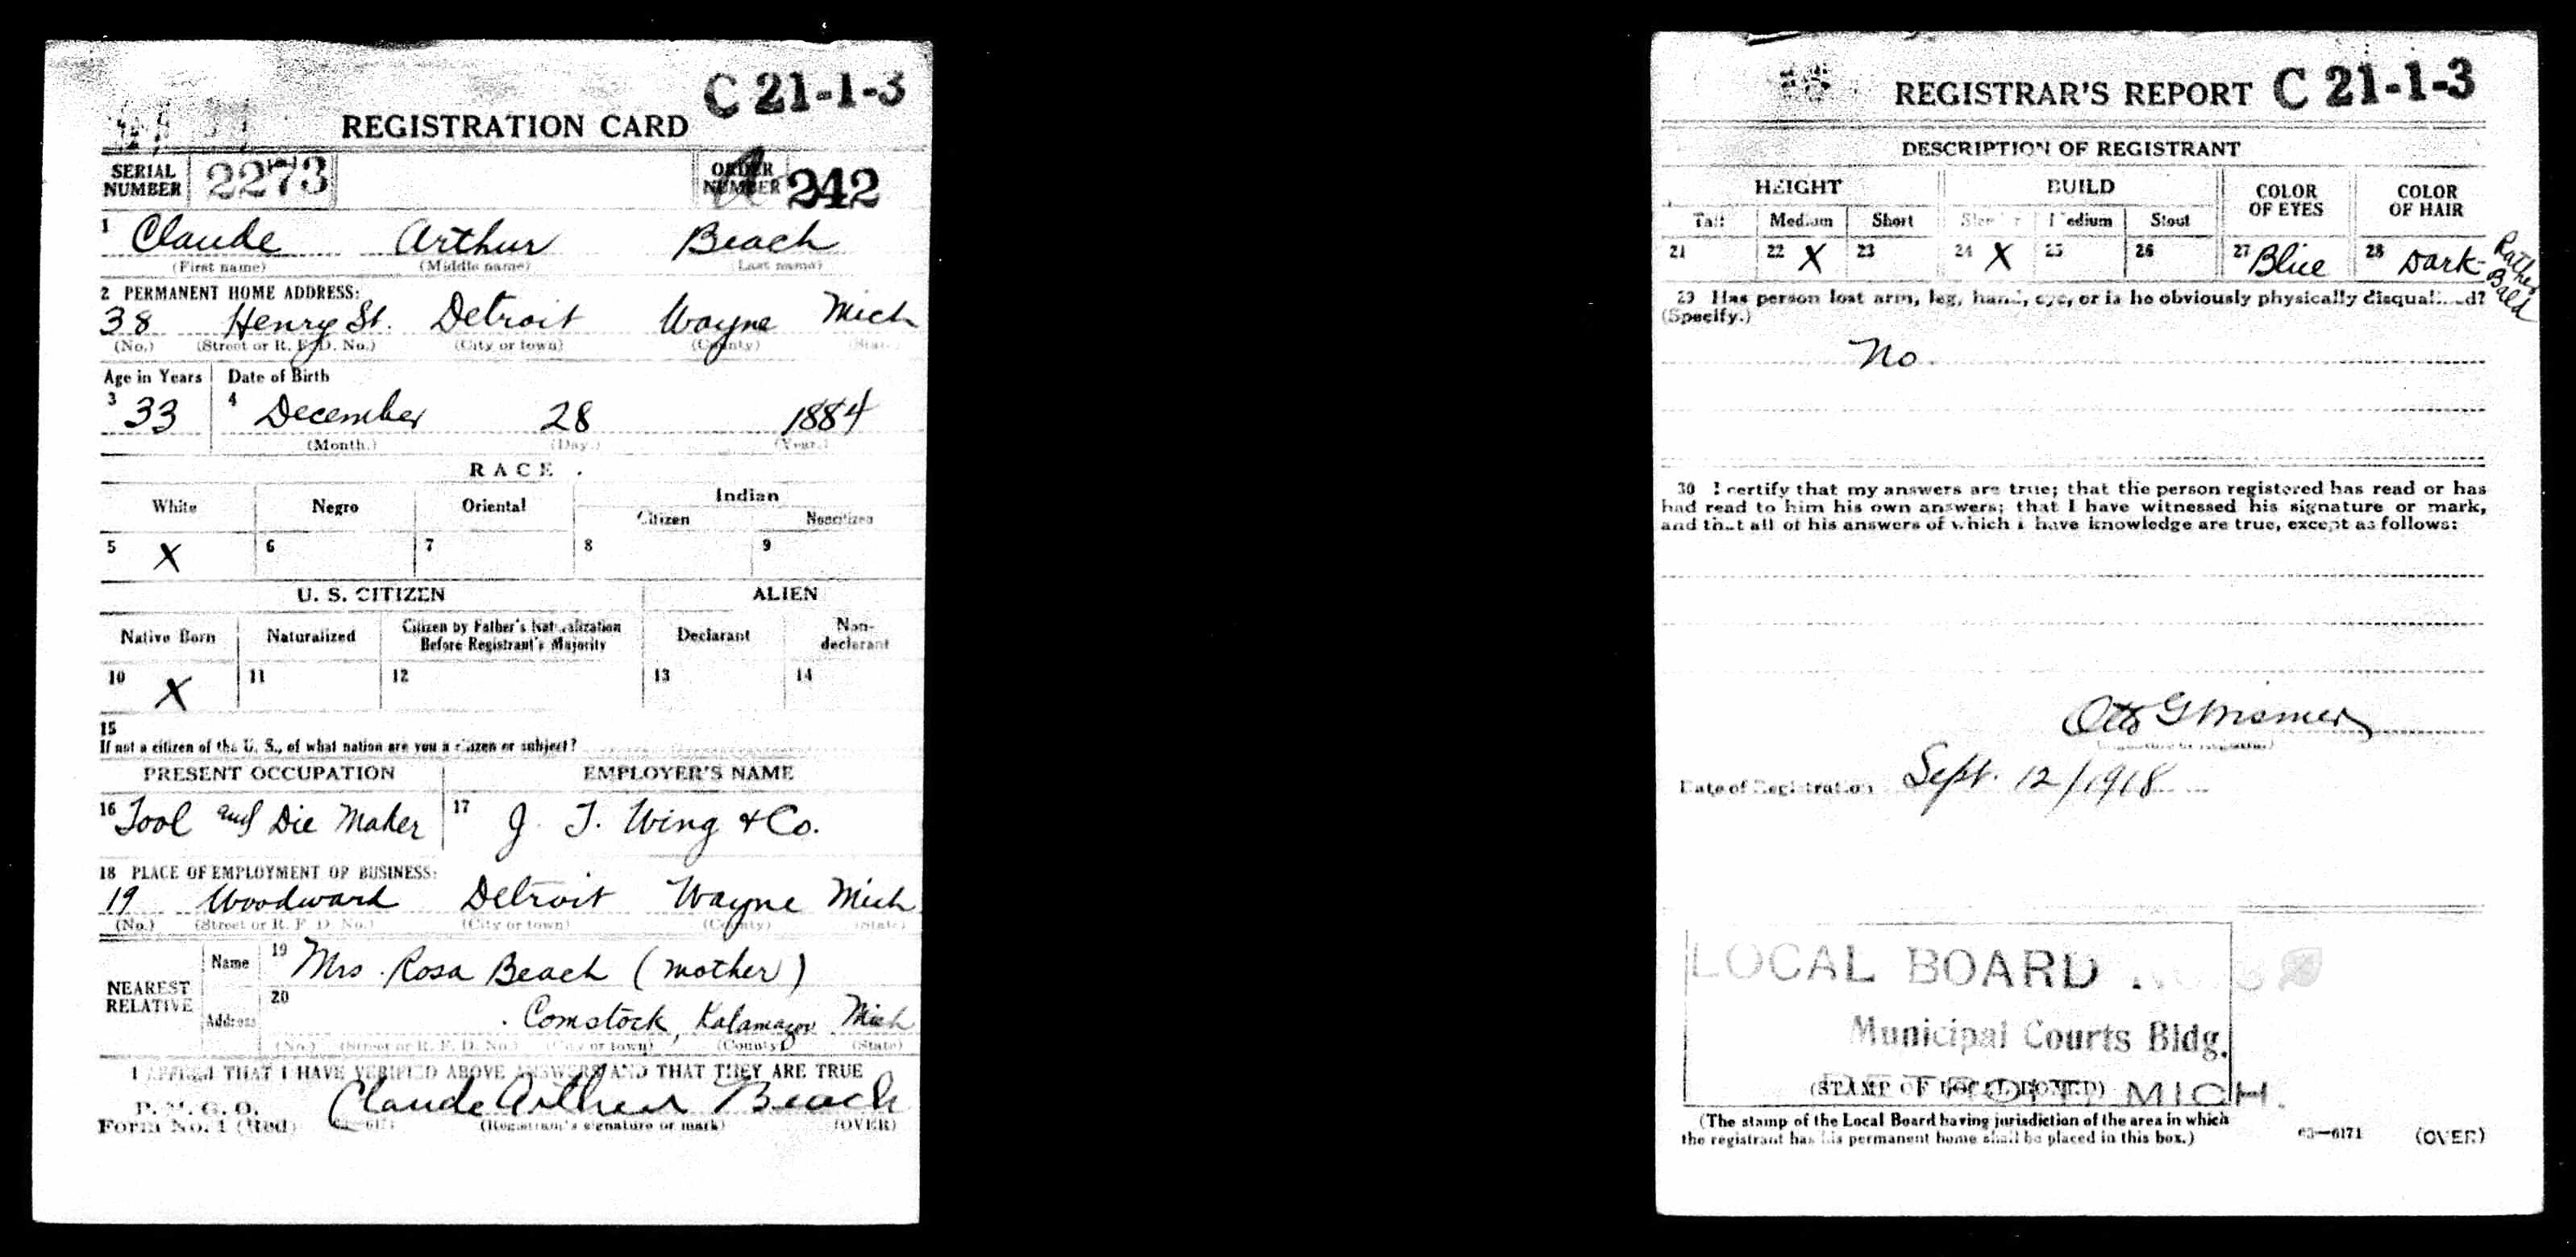 C 21-1-3
REGISTRATION CARD
SERIAL NUMBER 2273 ORDER NUMBER A 242
1 Claude Arthur Beach
(First name) (Middle name) (Last name)
2 PERMANENT HOME ADDRESS:
38 Henry St. Detroit Wayne Mich
(No.) (Street or R. F. D. No.) (City or town) (County) (State)
Age in Years Date of Birth
3 33 4 December 28 1884
(Month.) (Day.) (Year.)
RACE
White Negro Oriental Indian
Citizen Noncitizen
5 X 6 7 8 9
U. S. CITIZEN ALIEN
Native Born Naturalized Citizen by Father's Naturalization Before Registrant's Majority Declarant Non-declarant
10 X 11 12 13 14
15
If not a citizen of the U. S., of what nation are you a citizen or subject?
PRESENT OCCUPATION EMPLOYER'S NAME
16 Tool and Die Maker 17 J. T. Wing & Co.
18 PLACE OF EMPLOYMENT OR BUSINESS:
19 Woodward Detroit Wayne Mich
(No.) (Street or R. F. D. No.) (City or town) (County) (State)
NEAREST RELATIVE Name 19 Mrs. Rosa Beach (mother)
Address 20 Comstock, Kalamazoo Mich
(No.) (Street or R. F. D. No.) (City or town) (County) (State)
I AFFIRM THAT I HAVE VERIFIED ABOVE ANSWERS AND THAT THEY ARE TRUE
P. M. G. O.
Form No. 1 (Red) Claude Arthur Beach
(Registrant's signature or mark) (OVER)
REGISTRAR'S REPORT C 21-1-3
DESCRIPTION OF REGISTRANT
HEIGHT BUILD COLOR OF EYES COLOR OF HAIR
Tall Medium Short Slender Medium Stout
21 22 X 23 24 X 25 26 27 Blue 28 Dark- Rather Bald
29 Has person lost arm, leg, hand, eye, or is he obviously physically disqualified?
(Specify.)
No.
30 I certify that my answers are true; that the person registered has read or has
had read to him his own answers; that I have witnessed his signature or mark,
and that all of his answers of which I have knowledge are true, except as follows:
Otto G
(Signature of registrar)
Date of Registration Sept. 12/1918
LOCAL BOARD NO.
Municipal Courts Bldg.
(STAMP OF LOCAL BOARD)
DETROIT, MICH.
(The stamp of the Local Board having jurisdiction of the area in which
the registrant has his permanent home shall be placed in this box.)
63—6171 (OVER)